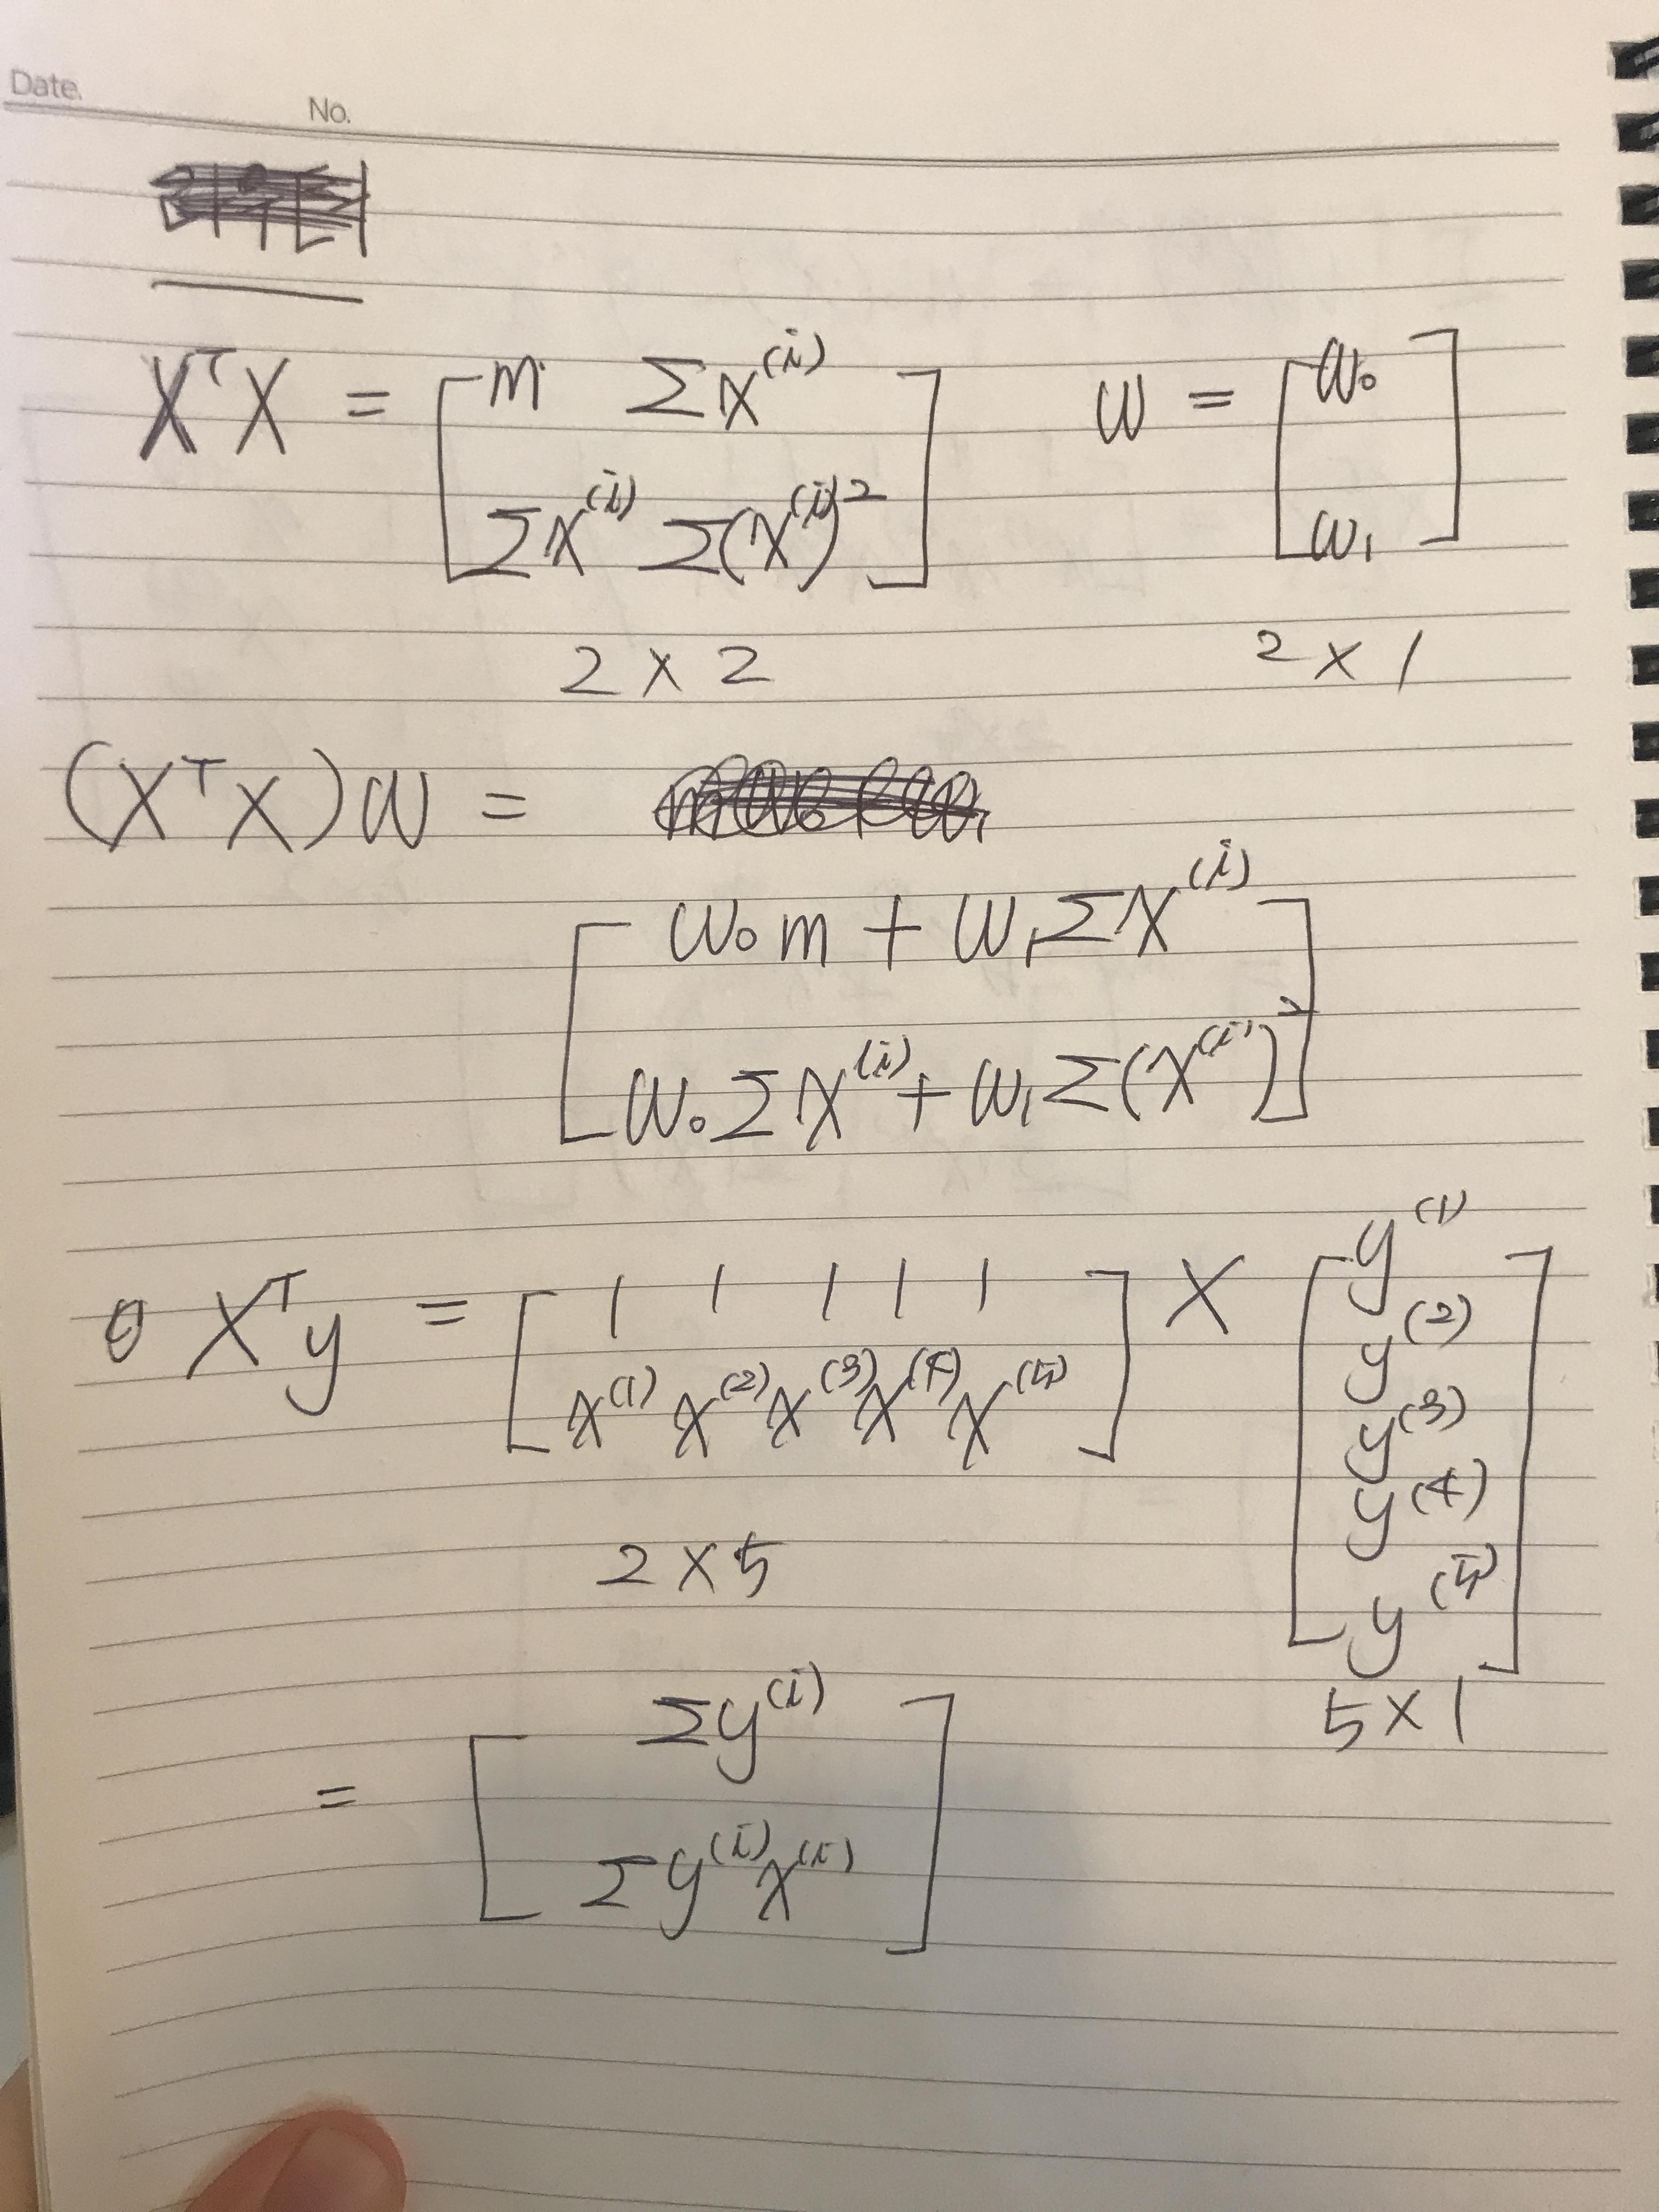 Date.
No.
XᵀX = [ m Σx⁽ⁱ⁾ w = [ w₀
Σx⁽ⁱ⁾ Σ(x⁽ⁱ⁾)² ] w₁ ]
2 × 2 2 × 1
(XᵀX)w =
[ w₀m + w₁Σx⁽ⁱ⁾
w₀Σx⁽ⁱ⁾ + w₁Σ(x⁽ⁱ⁾)² ]
Xᵀy = [ 1 1 1 1 1
x⁽¹⁾ x⁽²⁾ x⁽³⁾ x⁽⁴⁾ x⁽⁵⁾ ] × [ y⁽¹⁾
y⁽²⁾
y⁽³⁾
y⁽⁴⁾
y⁽⁵⁾ ]
2 × 5
5 × 1
= [ Σy⁽ⁱ⁾
Σy⁽ⁱ⁾x⁽ⁱ⁾ ]